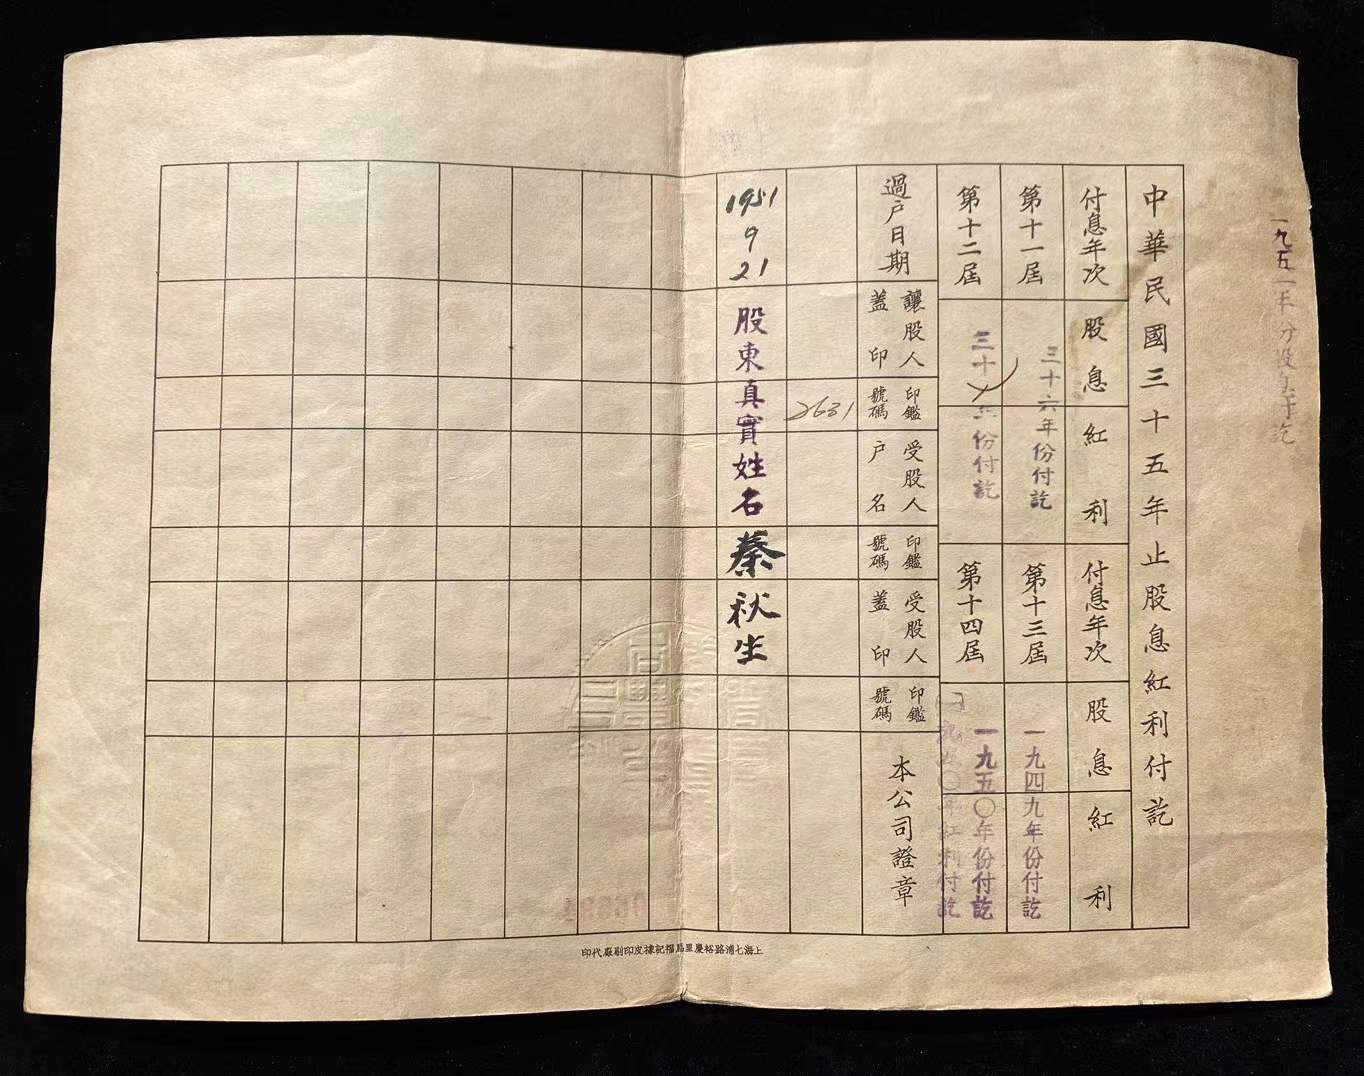 一九五一年份股息付訖
中華民國三十五年止股息紅利付訖
付息年次
股息
紅利
付息年次
股息
紅利
第十一屆
三十六年份付訖
第十三屆
一九四九年份付訖
第十二屆
三十
份付訖
第十四屆
一九五〇年份付訖
一九五〇年紅利付訖
過戶日期
讓股人
蓋印
印鑑
號碼
受股人
戶名
印鑑
號碼
受股人
蓋印
印鑑
號碼
本公司證章
2631
1951
9
21
股東真實姓名秦秋生
上海七浦路裕慶里
福記橡皮印刷廠代印